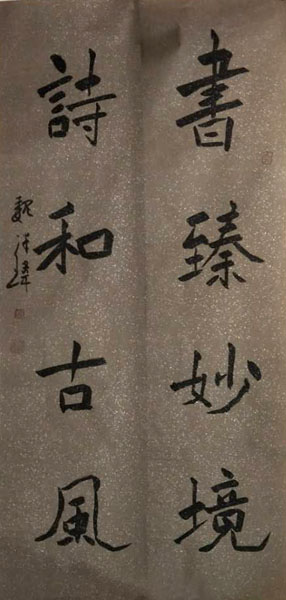 書臻妙境
詩和古風